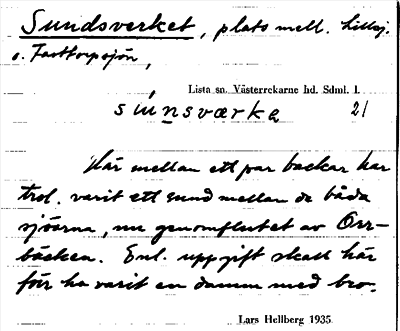 Sundsverket, plats mell. Lillsj.
o. Tarttorpsjön,
Lista sn. Västerrekarne hd. Sdml. 1.
súnsværkə 21
Här mellan ett par backar har
trol. varit ett sund mellan de båda
sjöarna, nu genomflutet av Orr-
bäcken. Enl. uppgift skall här
förr ha varit en damm med bro.
Lars Hellberg 1935